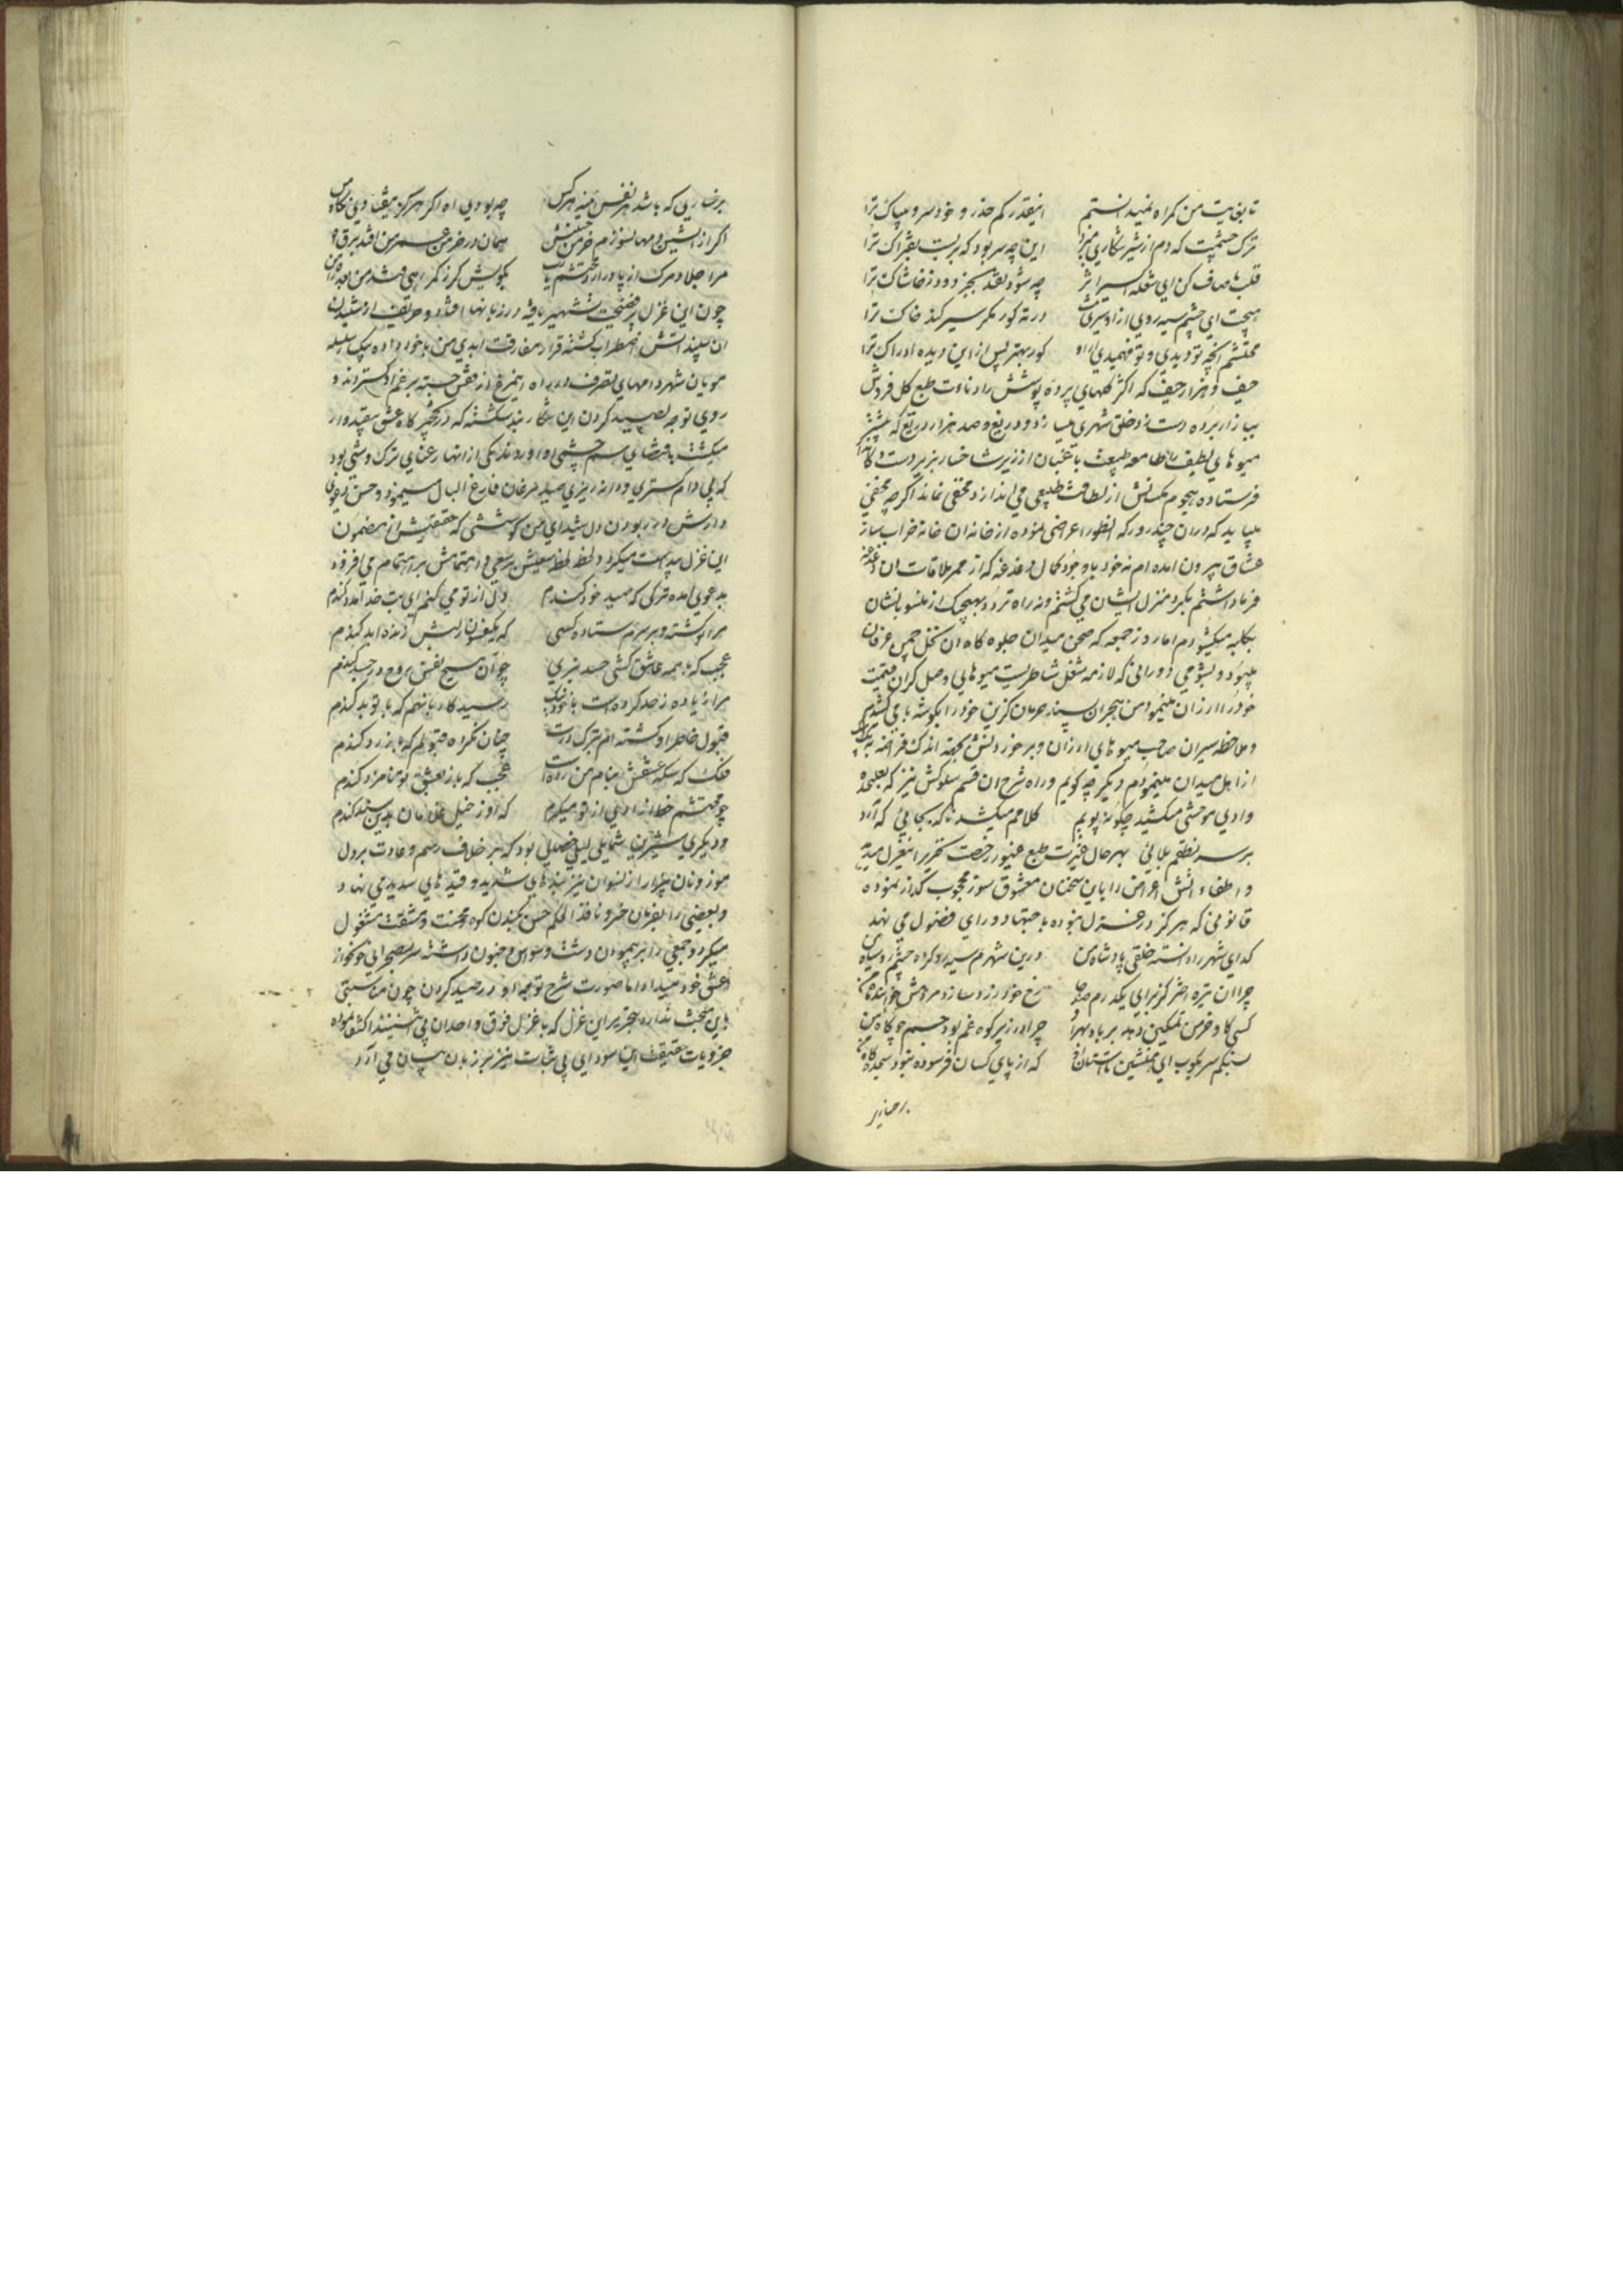 تا بغایت من کمراه نمیدانستم اینقدر کم حذر و خودسر و بیباک ترا
ترک چشمیت که دم از شیر شکاری میزد این چه سر بود که بربست بفتراک ترا
قلب ما صاف کن ای شعله اثر چه شود نقد بجز دود ز خاشاک ترا
هیچت ای چشم سیه روی ازو سیری نیست در ته کور مکر سیر کند خاک ترا
محتشم آنچه تو دیدی و تو فهمیدی ازو کور بهتر پس ازین دیده ادراک ترا
حیف و هزار حیف که اکثر کلهای پرده پوشش را دناءت طبع کل فروش
ببازار برده دست زد خلق شهری میسازد و دریغ و صد هزار دریغ که پیشتر
میوهای لطیفش را طامعه طبیعت باغبان از زیر شاخسار بزیر دست
فرستاده هجوم مکسانش از لطافت طبیعی می اندازد مخفی نماند اکرچه
میباید که دران چند روز که بطور اعراضی نموده از خانه آن خانه خراب ساز
عشاق بیرون آمده ام نه خود با وجود کمال دغدغه که از ممر ملاقات آن
فرهاد داشتم بکرد منزل ایشان می کشتم و نه راه تردد بهیچیک از منسوبانشان
بکلبه میکشودم اما روز جمعه که صحن میدان جلوه کاه آن نخل چمن عرفان
میبود و بشومی دورانی که لازمه شغل شاطریست میوهای وصل کران قیمت
خود را ارزان مینمود من هجران پسند حرمان کزین خود را بکوشه با می کشیدم
و ملاحظه سیران صاحب میوهای ارزان و برخوردنش بجهة اندک فراغت
از اهل میدان مینمودم دیکر چه کویم و راه شرح آن قسم سلوکش نیز که
وادی موحشی میکشید چکونه پویم کلامم میکشد ناکه بجایی که آرد
بر سر نطقم بلایی بهر حال غیرت طبع غیور رخصت تحریر این غزل میدهد
و اطفاء آتش اعراض را باین سخنان معشوق سوز محبوب کداز نموده
قانونی که هرکز در غزل نبوده باجتهاد و رای فضول می نهد
کدای شهر را دانسته خلقی پادشاه من درین شهرم سیه رو کرده چشم روسیاه من
چرا آن تیره اختر کز برای یکدرم صد جا رخ خود زرد سازد مردمش خوانند ماه من
کسی کاو خرمن تمکین دهد بر باد بهر او چرا در زیر کوه غم بود جسم چو کاه من
بسنکم سر بکوب ای همنشین که از پای کسان فرسوده بنود سجده کاه من
برخاری که باشد هر نفس منه هر کس چه بودی آه اکر هرکز نیفتادی نکاه من
اکر از آتشین دمها نسوزم خرمن حسنش همان در خرمن عمر من افتد برق آه من
مرا جلاد مرک از پا درارد محتشم یارب بکویش کر ز کمراهی فتد من بعد راه من
چون این غزل پر فضیحت تشهیر یافته در زبانها افتاد و حریف از شنیدن
آن سپند آتش اضطراب کشته قرار مفارقت ابدی من با خود داده یک سلسله
مویان شهر دامهای تصرف در راه این مرغ از قفس جسته بر غم او کستردند و
روی توجه بصید کردن این شکار بند شکسته که در نخجیر کاه عشق مقید وار
میکشت باقتضای سم چشمی او آوردند یکی از انها رعنای ترک وشی بود
که بی دام کستری و دانه ریزی صید مرغان فارغ البال مینمود و حسن
دارش در ربودن دل شیدای من کوششی که حقیقتش از مضمون
این غزل پیداست میکرد و لحظه لحظه سعیش بر سعی و اهتمامش بر اهتمام می افزود
بدعوی آمده ترکی که صید خود کندم دل از تو می کنم ای بت خدا مدد کندم
مرا تو کشته و بر سرم ستاده کسی که یکفسون ز لبش زنده ابد کندم
عجب که با همه عاشق کشی حسد نبری چو آن مسیح نفس روح در جسد کندم
مرا زیاده ز حد کرده است با خود نیک رسید کار بانهم که با تو بد کندم
قبول خاطر او کشته ام بترک درت چنان نکرده قبولم که باز رد کندم
فلک که سکه عشقش بنام من زده است عجب که باز بعشق تو نامزد کندم
چو محتشم خط آزادی از تو میکیرم که او ز خیل غلامان این سند کندم
و دیکری شیرین شمایلی لیلی خصایلی بود که بر خلاف رسم و عادت بر دل
موزونان بیزار از نسوان نیز بندهای شدید و قیدهای سدید می نهاد
و بعضی را بفرمان خرد نافذ الحکم حسن بکندن کوه محنت و مشقت مشغول
میکرد و جمعی را بر پیمودن دشت وسواس و جنون داشته سر بصحرای خونخوار
عشق خود میداد اما صورت شرح توجه او در صید کردن چون مناسبتی
باین مبحث ندارد بجز بر این غزل که با غزل فوق و احدان پی شنیدند اکتفا نموده
جزویات حقیقت این سودای بی ثبات نیز بر زبان بیان می آرد